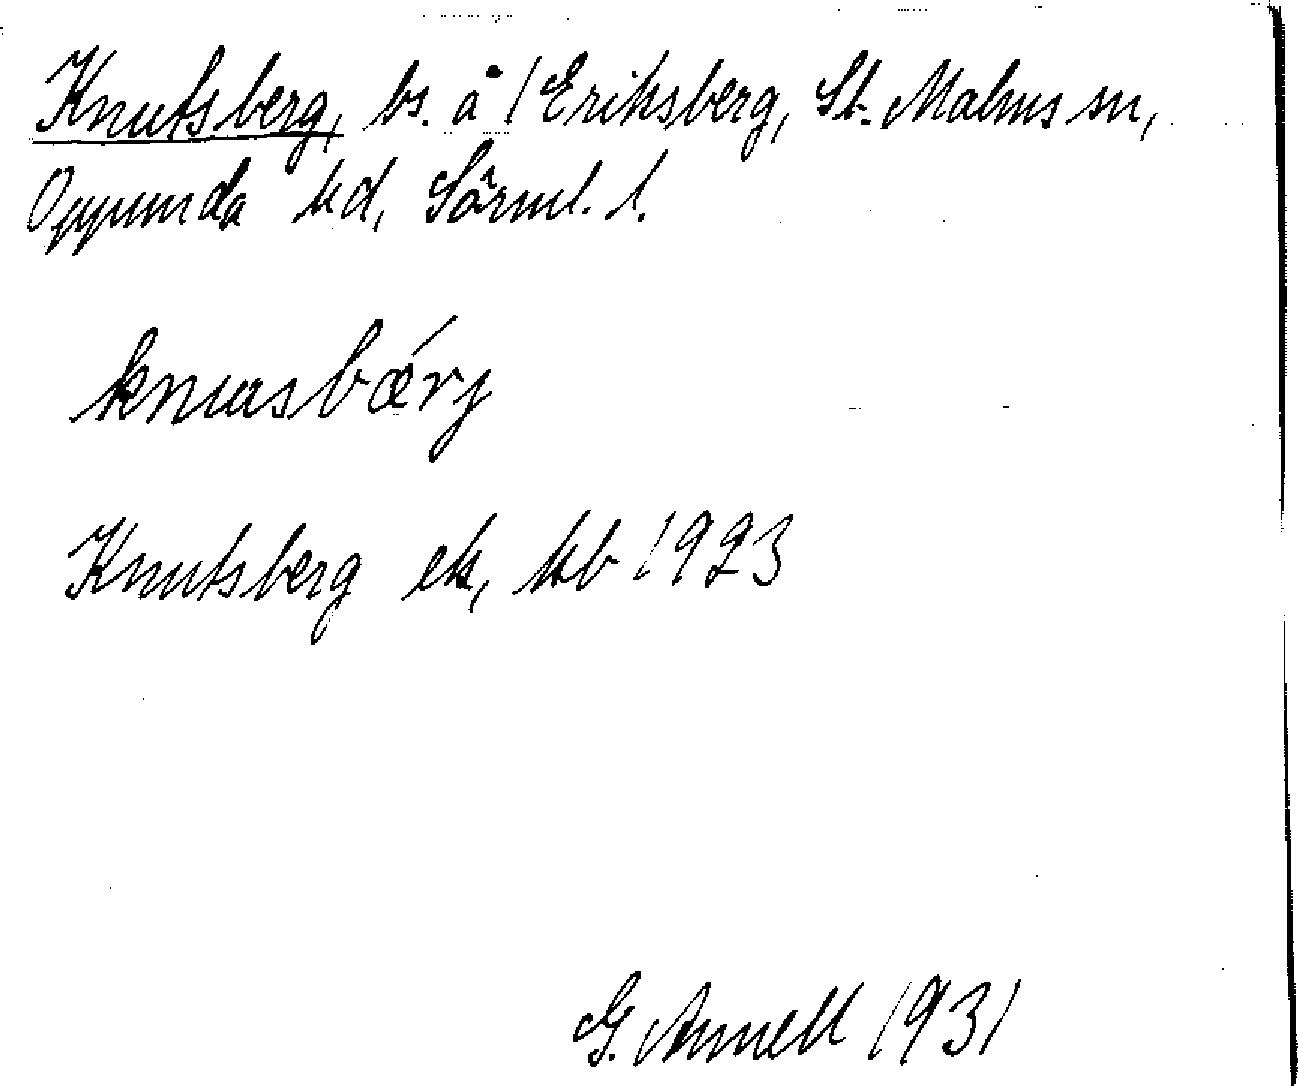 Knutsberg, bs. å 1 Eriksberg, St. Malms sn,
Oppunda hd, Sörml. l.
knusbǽrj
Knutsberg ek, kb 1923
G. Annell 1931